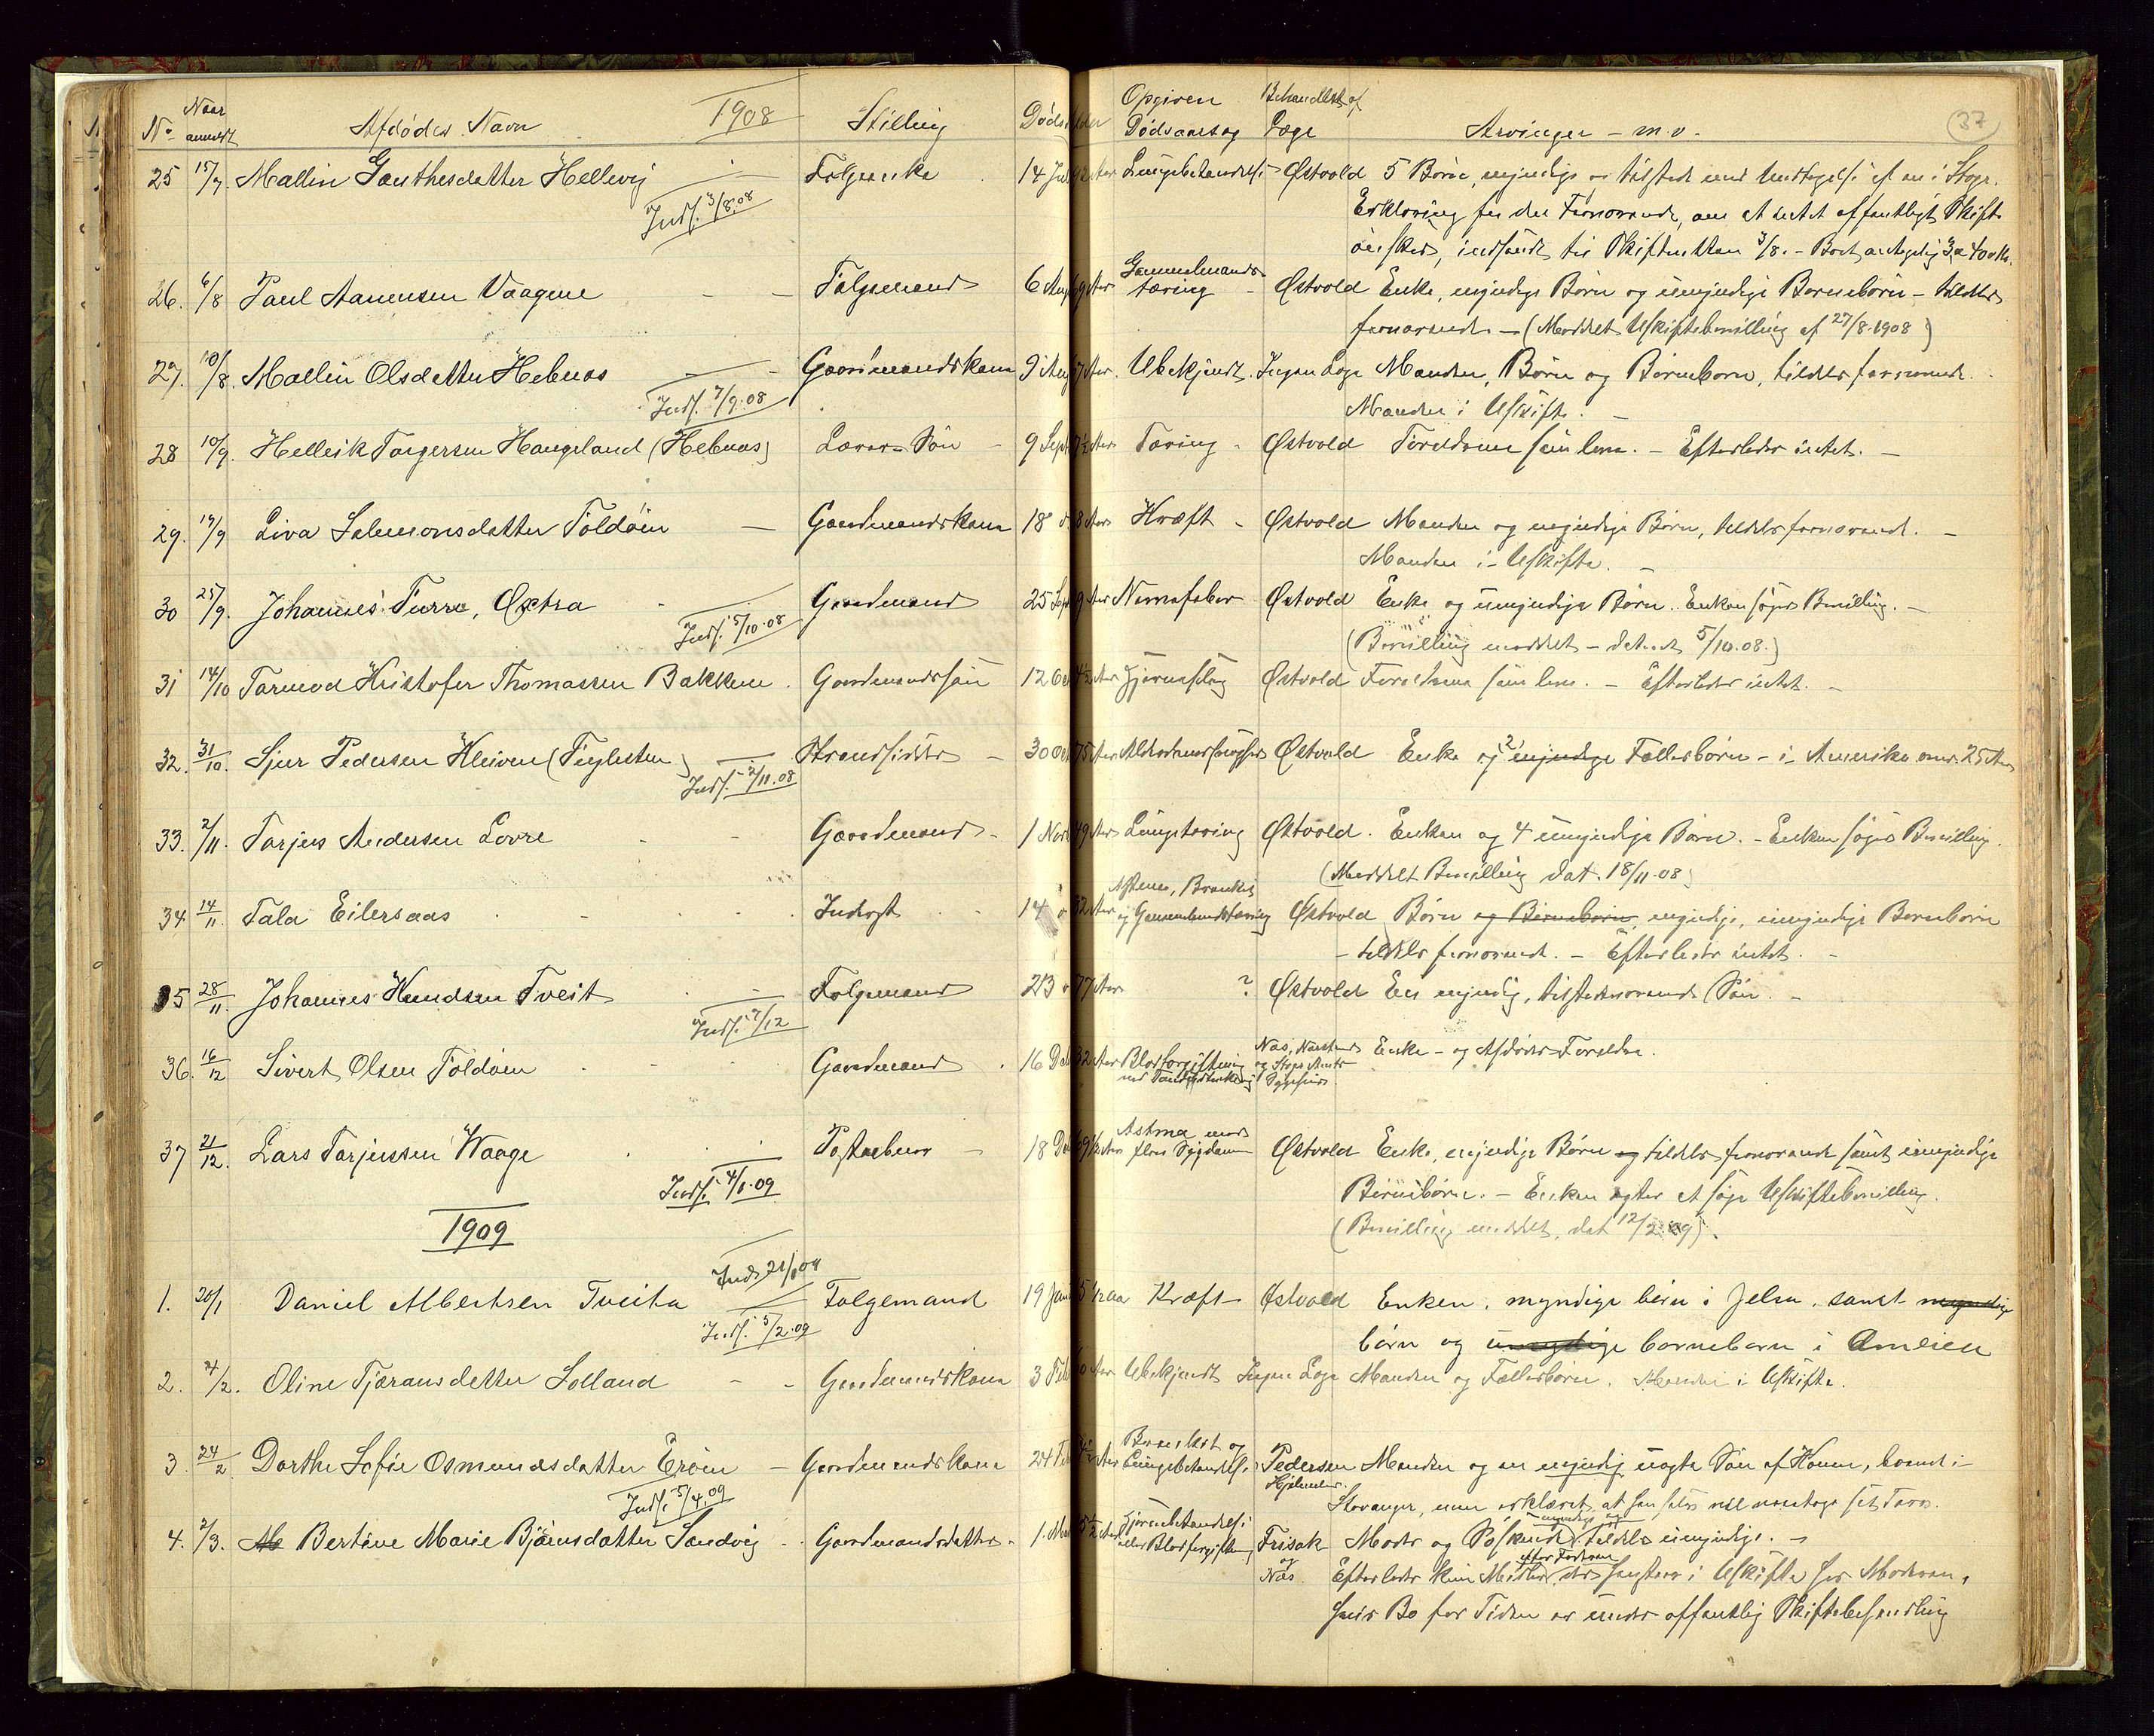 No Naar anmeldt Afdødes Navn 1908 Stilling Døds Alder Opgiven Dødsaarsag Behandlet af Læge Arvinger - m.v. (37)
25 15/7. Mallin Gauthesdatter Hellevig Folgeenke 14 Juli Aar Lungebetændelse Østvold 5 Børn, myndige og tilstede med Undtagelse af en i
Indf. 3/8.08 Erklæring fra den Fraværende, om at intet offentligt Skifte
ønskes, indsendt til Skifteretten 3/8. - Boet antagelig
26. 6/8 Paul Aanensen Vaagene - - Folgemand 6 Aug 69 Aar Gammelmands-
tæring - Østvold Enke, myndige Børn og umyndige Børnebørn - tildels
fraværende. - (Meddelt Uskiftebevilling af 27/8.1908)
27. 10/8. Mallin Olsdatter Hebnes - - Gaardmandskone 9 Aug Aar. Ubekjendt. Ingen Læge Manden, Børn og Børnebørn, tildels fraværende.
Indf. 7/9.08 Manden i Uskifte. -
28 10/9. Hellik Torgersen Haugeland (Hebnes) Lærer-Søn - 9 Sept 1/2 Aar Tæring - Østvold Forældrene som leve. - Efterlader intet. -
29. 19/9 Liva Salemonsdatter Foldøen - Gaardmandskone 18 Aar Kræft - Østvold Manden og myndige Børn, tildels fraværende. -
Manden i Uskifte. -
30 25/9. Johannes Furre, Øxtra - Gaardmand 25 Sept Aar Nervefeber Østvold Enke og umyndige Børn. Enken søger Bevilling. -
Indf. 5/10.08 (Bevilling meddelt - dateret 5/10.08.)
31 14/10 Tarmod Kristofer Thomassen Bakken. Gaardmandssøn 12 Oct 1/2 Aar Hjerneslag Østvold Forældrene som leve. - Efterlader intet. -
32. 31/10. Sjur Pedersen Kleiven (Fuglesten) - Strandsidder - 30 Oct 75 Aar Alderdomssvaghed Østvold Enke og 2 myndige Fællesbørn - i Amerika omr. 25 Aar
Indf. 2/11.08
33. 2/11. Tarjers Andersen Lovre - - Gaardmand - 1 Nov 49 Aar Lungetæring Østvold. Enken og 4 umyndige Børn. - Enken søger Bevilling.
(Meddelt Bevilling dat. 18/11.08)
34. 14/11 Tala Eilersaas - - - - Inderst - - 14 Aar Astma, Bronkit
og Gammelmandstæring Østvold Børn og Børnebørn, myndige, umyndige Børnebørn
- tildels fraværende. - Efterlader intet. -
35 28/11. Johannes Knudsen Tveit - - Folgemand 23 77 Aar ? Østvold En myndig, tilstedeværende Søn. -
Indf. 7/12
36. 16/12 Sivert Olsen Foldøen - - - Gaardmand - 16 Dec 32 Aar Blodforgiftning
ved Næs, og Amts Sygehus. Enke - og Afdødes Forældre.
37 21/12. Lars Tarjeisen Waage - - Postaabner - 18 Dec 69 1/2 Aar Astma med
flere Sygdomme Østvold Enke, myndige Børn og tildels fraværende samt umyndige
Indf. 4/1.09 Børnebørn. - Enken agter at søge Uskiftebevilling.
1909 (Bevilling meddelt, dat 12/2 09).
Inds 21/1 09
1. 20/1 Daniel Albertsen Tveita - Folgemand 19 Jan Kræft Østvold Enken, myndige børn i Jelsa. samt myndige
Indf. 5/2.09 børn og umyndige børnebørn i
2. 4/2. Oline Tjæransdatter Solland - - Gaardmandskone 3 Feb Aar Ubekjendt Ingen Læge Manden og Fællesbørn. Manden i Uskifte.
3. 24/2 Dorthe Sofie Osmundsdatter Erøen - Gaardmandskone 24 Feb Aar Bronkit og
Lungebetændelse Pedersen
Hjelmeland. Manden og en myndig uægte Søn af Konen, boende i
Indf. 5/4.09 Stavanger,
4. 2/3. Bertine Marie Bjørnsdatter Sandvig - - Gaardmandsdatter - 1. Mar 1/2 Aar Hjernebetændelse
eller Blodforgiftning Frisak
og
Næs Moder og Søskende, myndige og tildels umyndige. -
Efterlader kun Midler efter Faderen der henstaar i Uskifte hos Moderen,
hvis Bo for Tiden er under offentlig Skiftebehandling